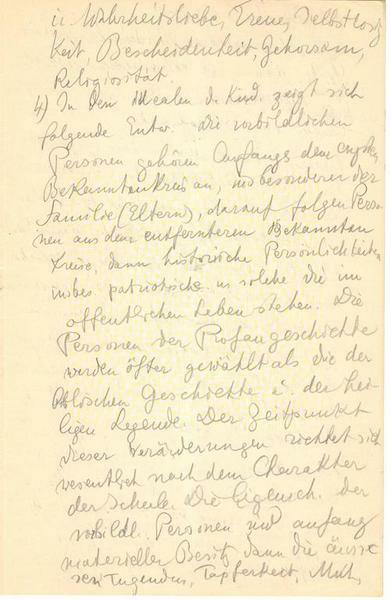 u. Wahrheitsliebe, Treue, Selbstlosig
keit, Bescheidenheit, Gehorsam,
Religiosität.
4) In den Idealen d. Kind. zeigt sich
folgende Entw. die vorbildlichen
Personen gehören Anfangs dem engsten
Bekanntenkreis an, insbesondere der
Familie (Eltern), darauf folgen Perso
nen aus dem entfernteren Bekannten
kreise, dann historische Persönlichkeiten
insbes. patriotische u. solche die im
öffentlichen Leben stehen. Die
Personen der Profangeschichte
werden öfter gewählt als die der
biblischen Geschichte u. der hei-
ligen Legende. Der Zeitpunkt
dieser Veränderungen richtet sich
wesentlich nach dem Charakter
der Schule. Die Eigensch. der
vorbildl. Personen sind anfang
materieller Besitz, dann die äusse
ren Tugenden, Tapferkeit, Mut,